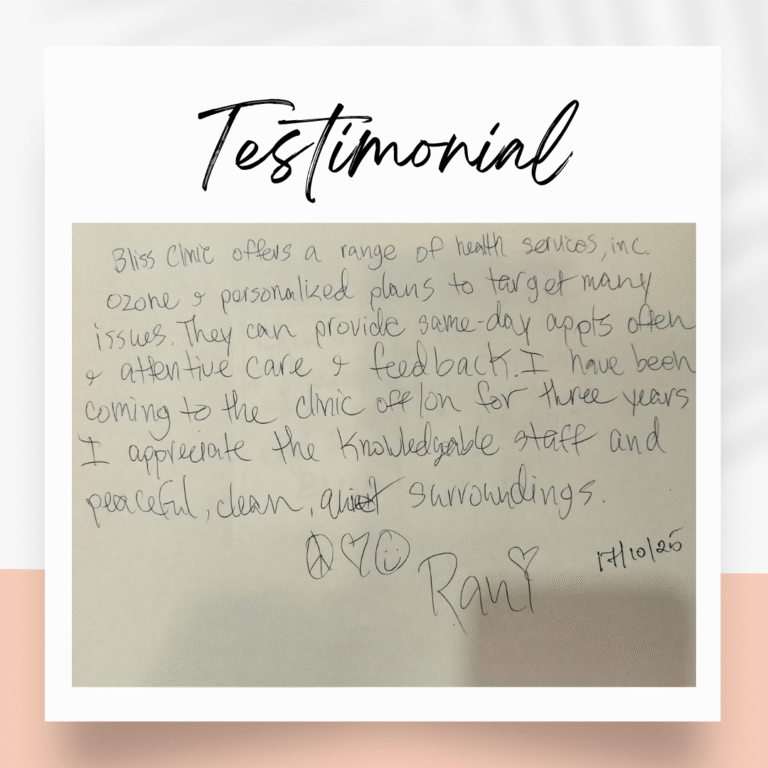 Testimonial
Bliss Clinic offers a range of health services, inc.
ozone & personalized plans to target many
issues. They can provide same-day appts often
& attentive care & feedback. I have been
coming to the clinic off/on for three years
I appreciate the knowledgable staff and
peaceful, clean, quiet surroundings.
Rani
17/10/25